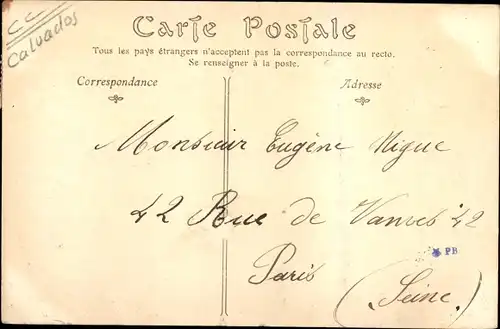 CC
Calvados
Carte Postale
Tous les pays étrangers n'acceptent pas la correspondance au recto.
Se renseigner à la poste.
Correspondance
Adresse
Monsieur Eugène Nigue
42 Rue de Vanves 42
PB
Paris
(Seine)